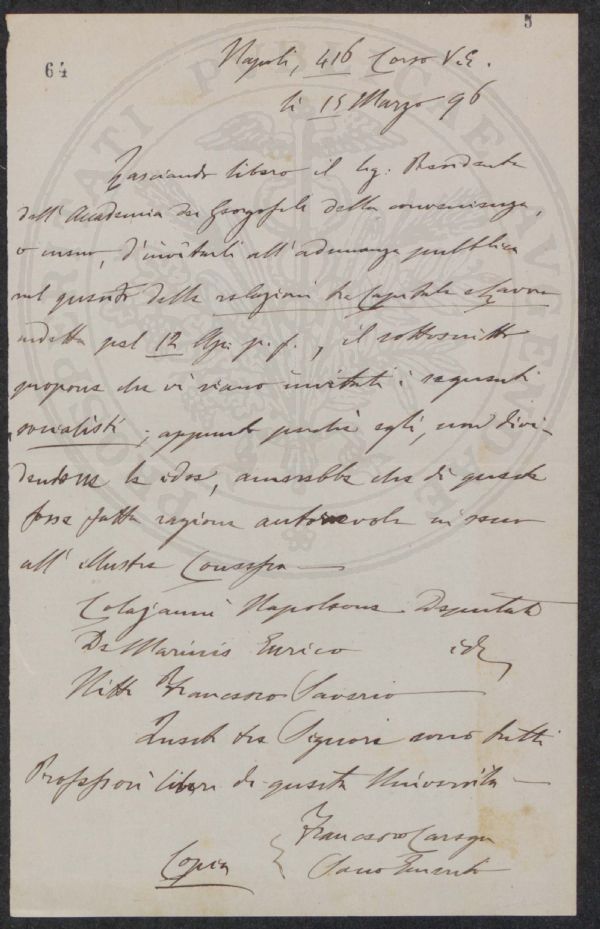 5
64
Napoli, 416 Corso V.E.
li 15 Marzo 96
Lasciando libero il Sig: Presidente
dell' Accademia dei Georgofili della convenienza,
o meno, d'invitarli all'adunanza pubblica
sul quesito delle relazioni tra Capitale e Lavoro
indetta pel 12 Apr. p. f., il sottoscritto
propone che vi siano invitati i seguenti
socialisti; appunto perchè egli, non divi-
dendone le idee, amerebbe che di queste
fosse fatta ragione autorevole in seno
all' illustre Consesso —
Colajanni Napoleone Deputato
De Marinis Enrico id
Nitti Francesco Saverio —
Questi tre Signori sono tutti
Professori liberi di questa Università —
Francesco
Socio Emerito
Copia
PROSPERITATI PUBLICAE AUGENDAE